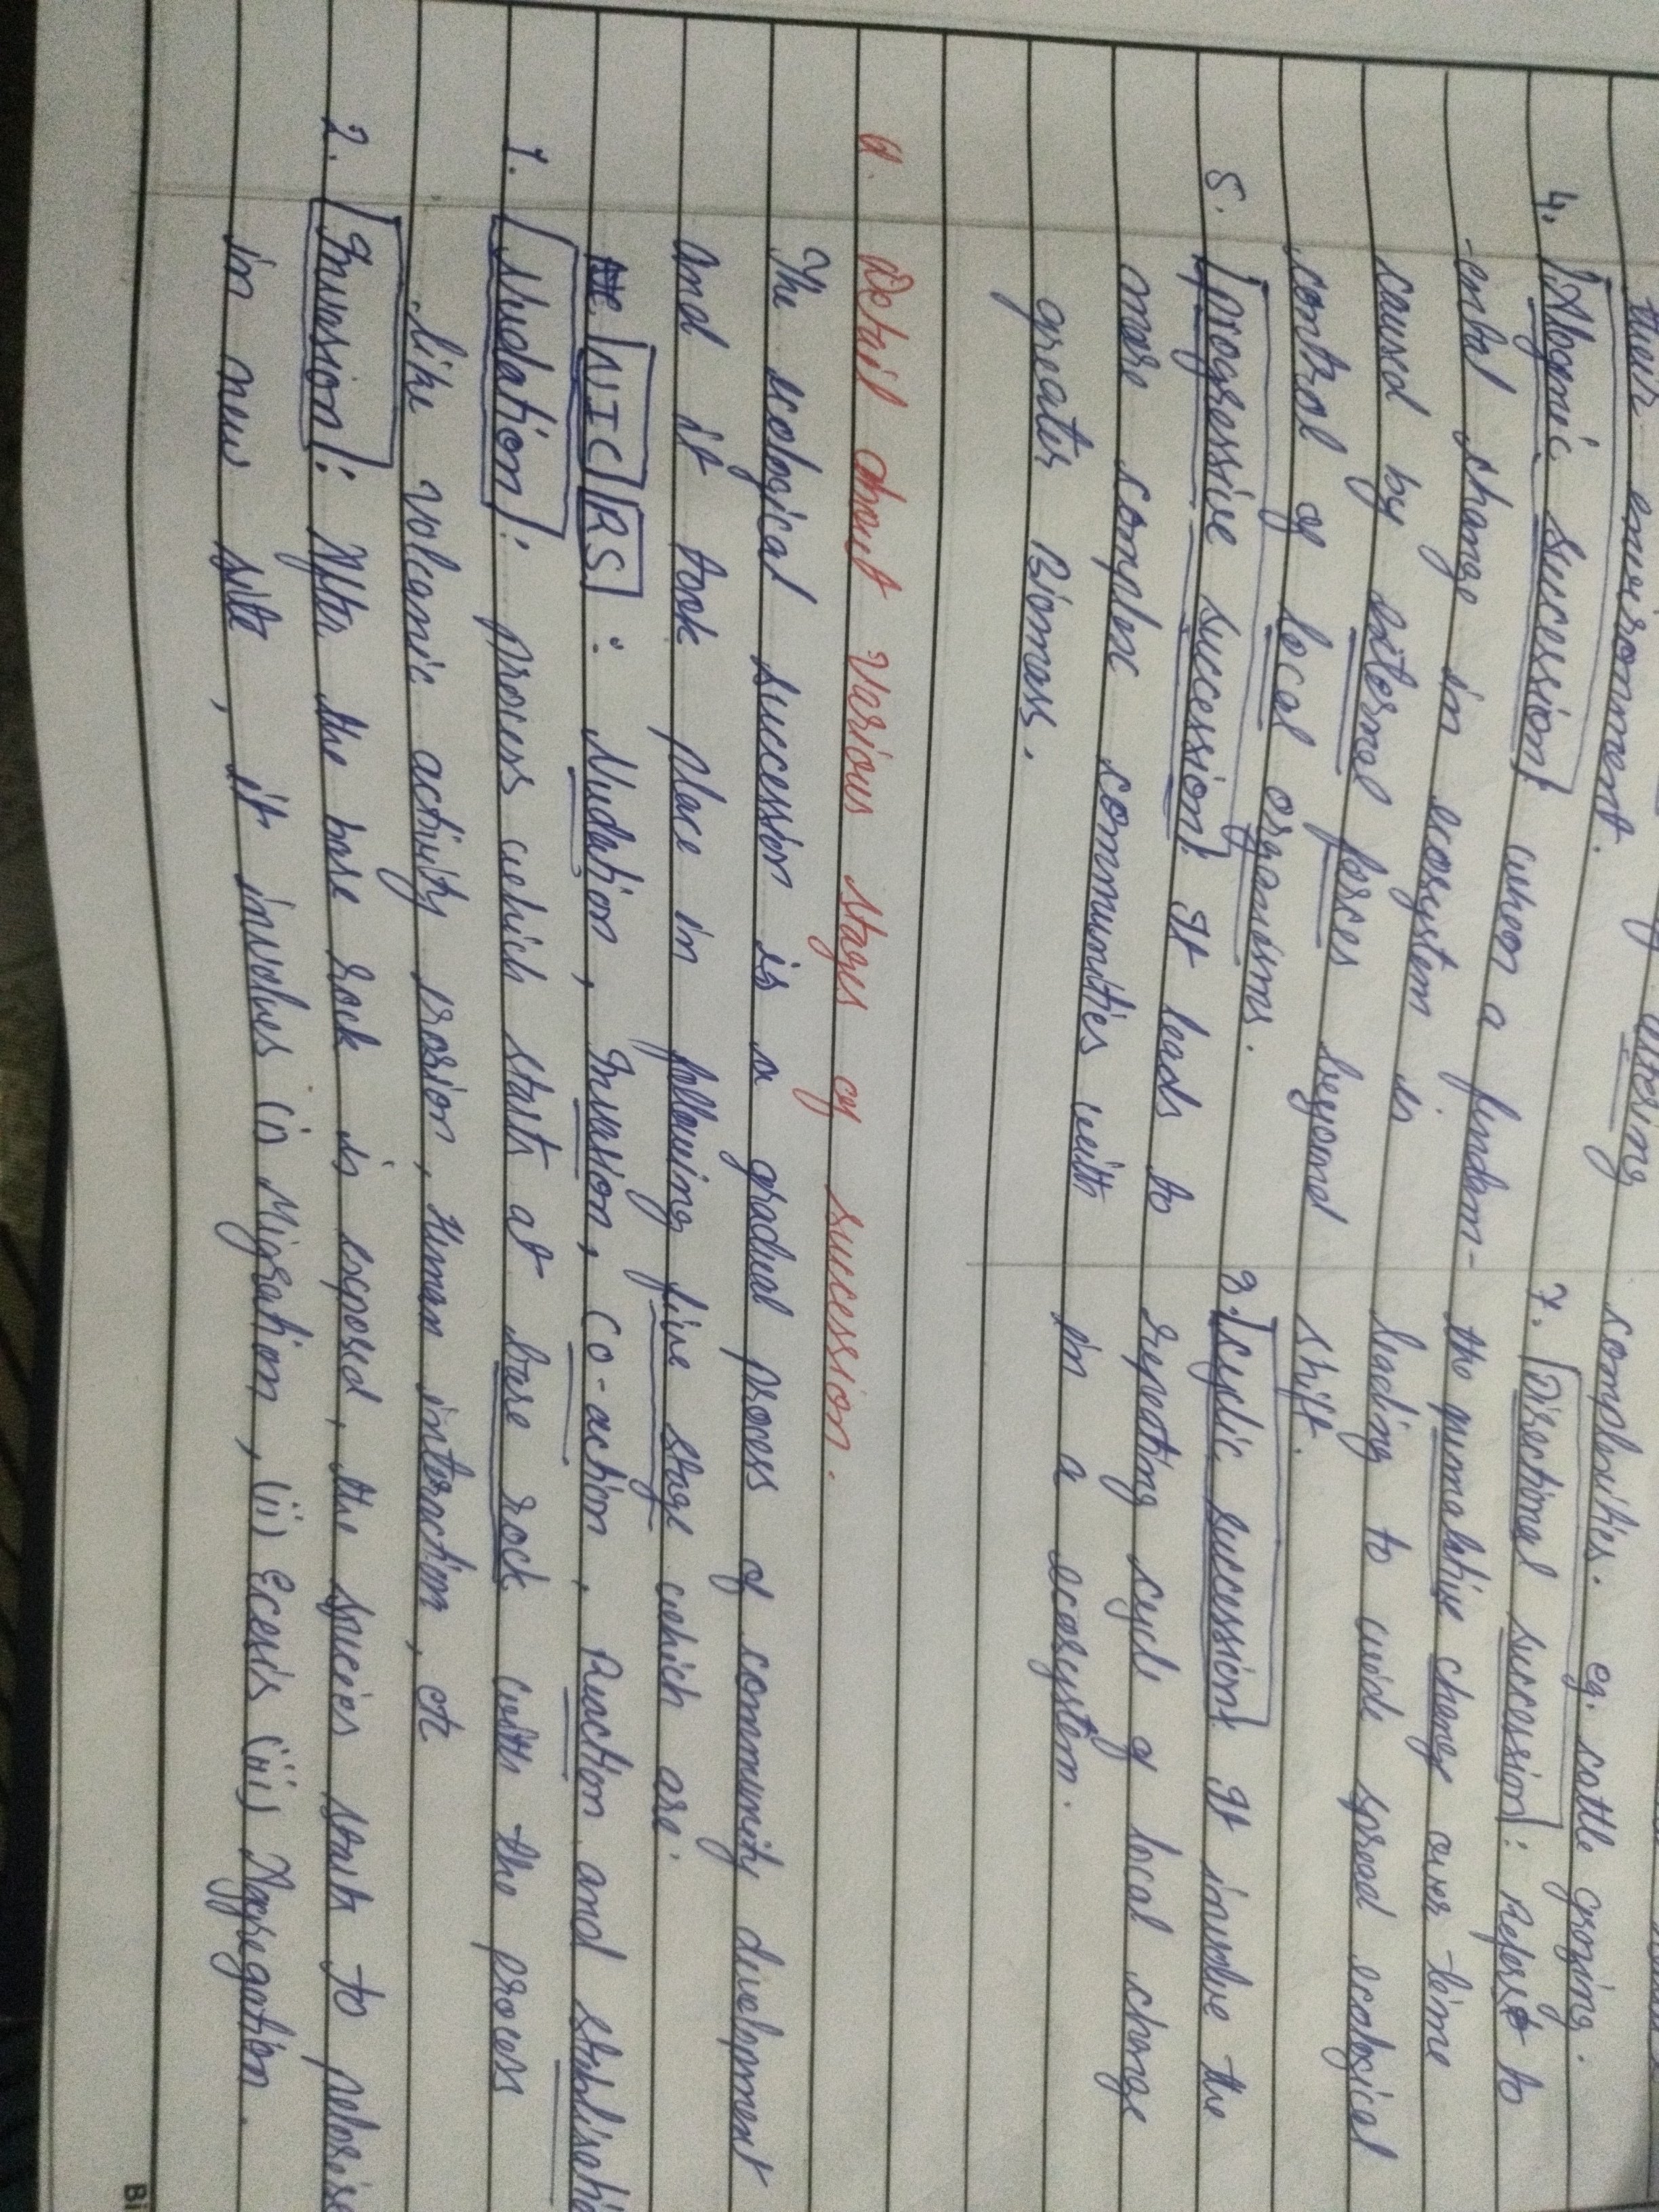 their environment.
altering
complexities. eg. cattle grazing.
4. Allogenic succession: when a fundam-
-ental change in ecosystem is
caused by external forces beyond
control of local organisms.
5. progressive succession: It leads to
more complex communities with
greater Biomass.
7. Directional succession: Refers to
the qumalative change over time
leading to wide spread ecological
shift.
8. cyclic succession: It involve the
repeating cycle of local change
in a ecosystem.
Q. Detail about Various stages of succession.
The ecological succession is a gradual process of community divelopment
and it took place in following five stage which are.
NIC RS : Nudation, Invasion, Co-action, Reaction and stablisatio
1. Nudation: process which starts at bare rock with the process
like volcanic activity erosion, Human interaction, etc
2. Invasion: After the bare rock is exposed, the species starts to
in new site, it involves (i) Migration, (ii) Ecesis (iii) Aggregation.
Bi